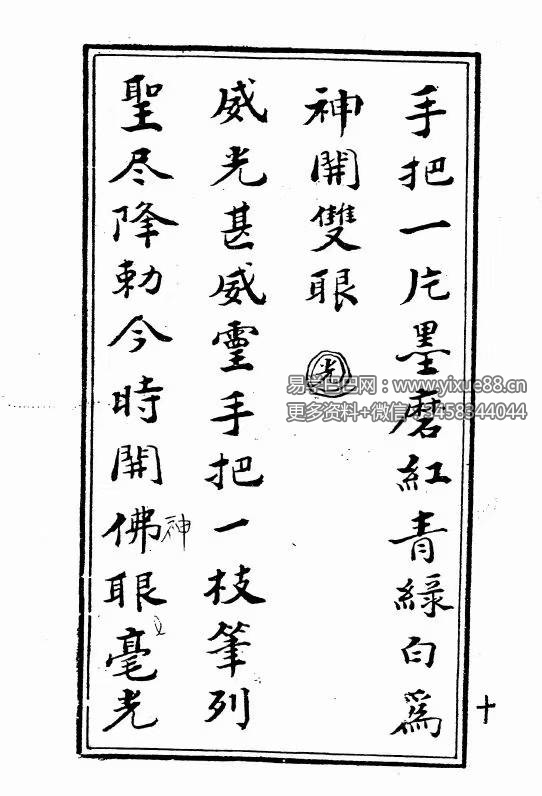 手把一片墨磨紅青綠白爲
神開雙眼 光
威光甚威灵手把一枝筆列
聖尽降勅今時開佛眼毫光
神
十
易学巴巴网:www.yixue88.cn
更多资料+微信:3458344044